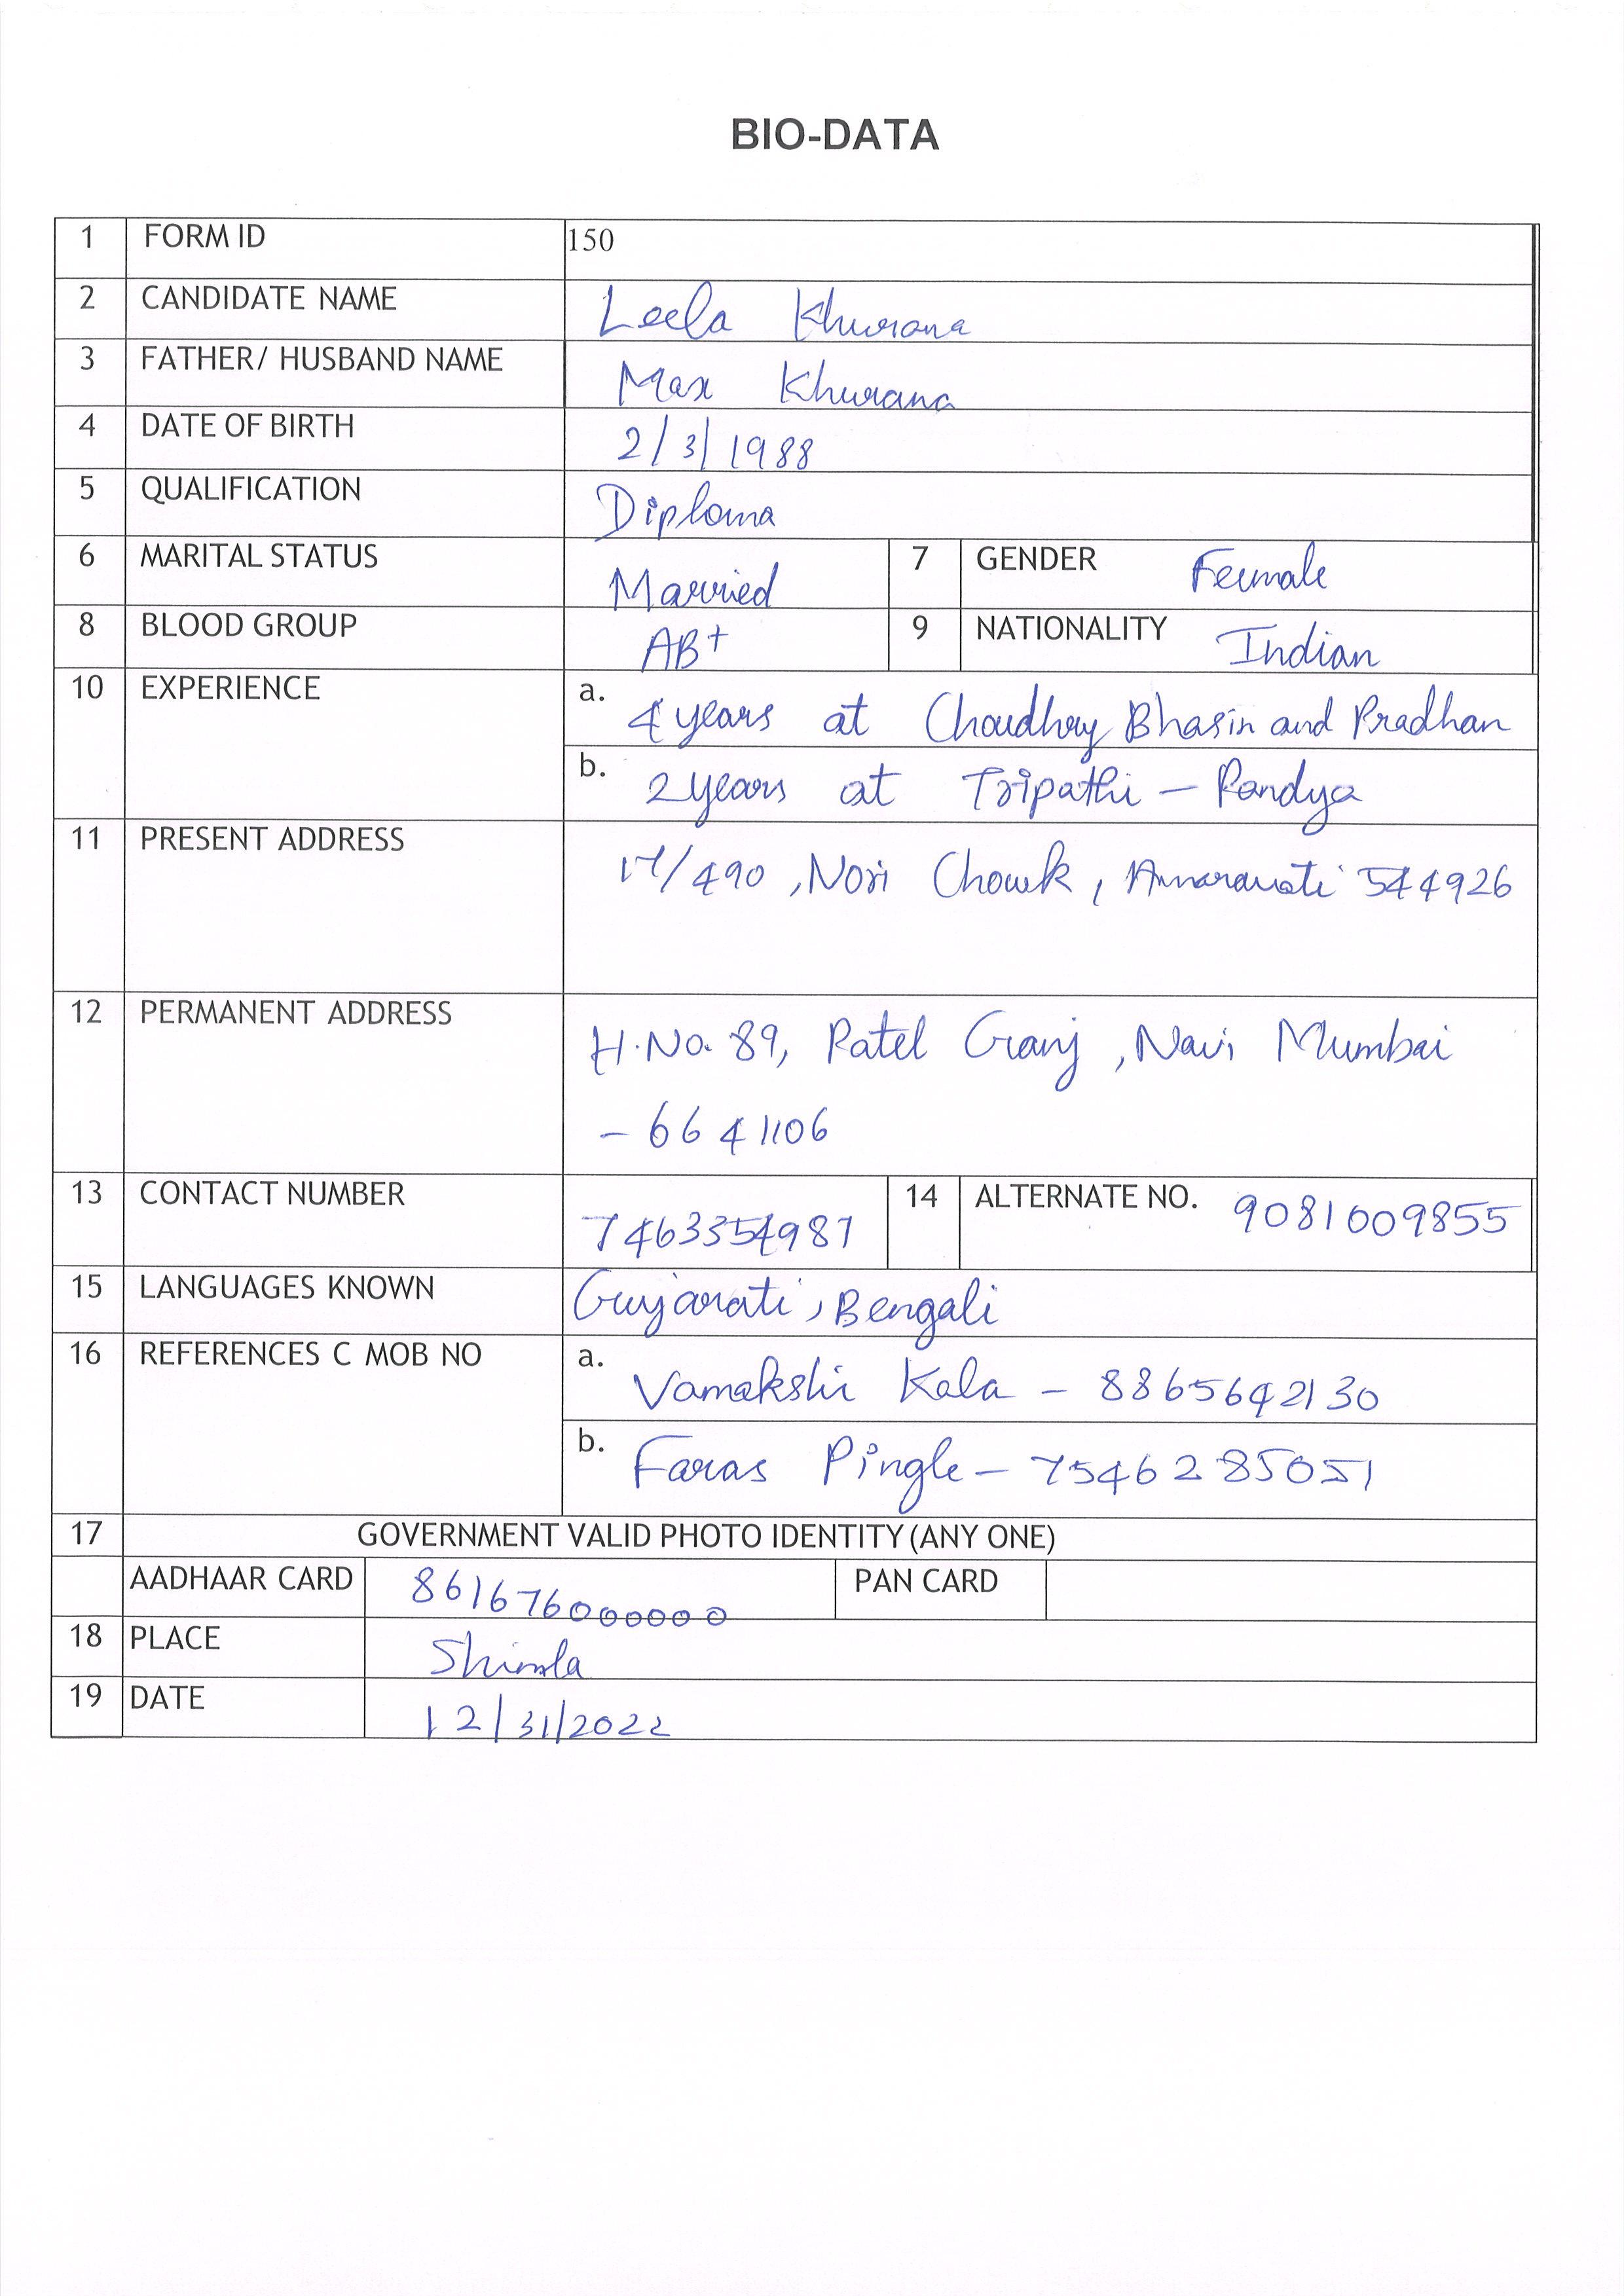 BIO-DATA
1 FORM ID 150
2 CANDIDATE NAME Leela Khurana
3 FATHER/ HUSBAND NAME Max Khurana
4 DATE OF BIRTH 2/3/1988
5 QUALIFICATION Diploma
6 MARITAL STATUS Married 7 GENDER Female
8 BLOOD GROUP AB+ 9 NATIONALITY Indian
10 EXPERIENCE a. 4 years at Choudhry Bhasin and Pradhan
b. 2 years at Tripathi - Pandya
11 PRESENT ADDRESS 17/490, Nori Chowk, Amaravati 544926
12 PERMANENT ADDRESS H.No. 89, Patel Ganj, Navi Mumbai
- 6641106
13 CONTACT NUMBER 7463354987 14 ALTERNATE NO. 9081009855
15 LANGUAGES KNOWN Gujarati, Bengali
16 REFERENCES C MOB NO a. Vamakshi Kala - 8865642130
b. Faras Pingle - 7546285051
17 GOVERNMENT VALID PHOTO IDENTITY (ANY ONE)
AADHAAR CARD 861676000000 PAN CARD
18 PLACE Shimla
19 DATE 12/31/2022